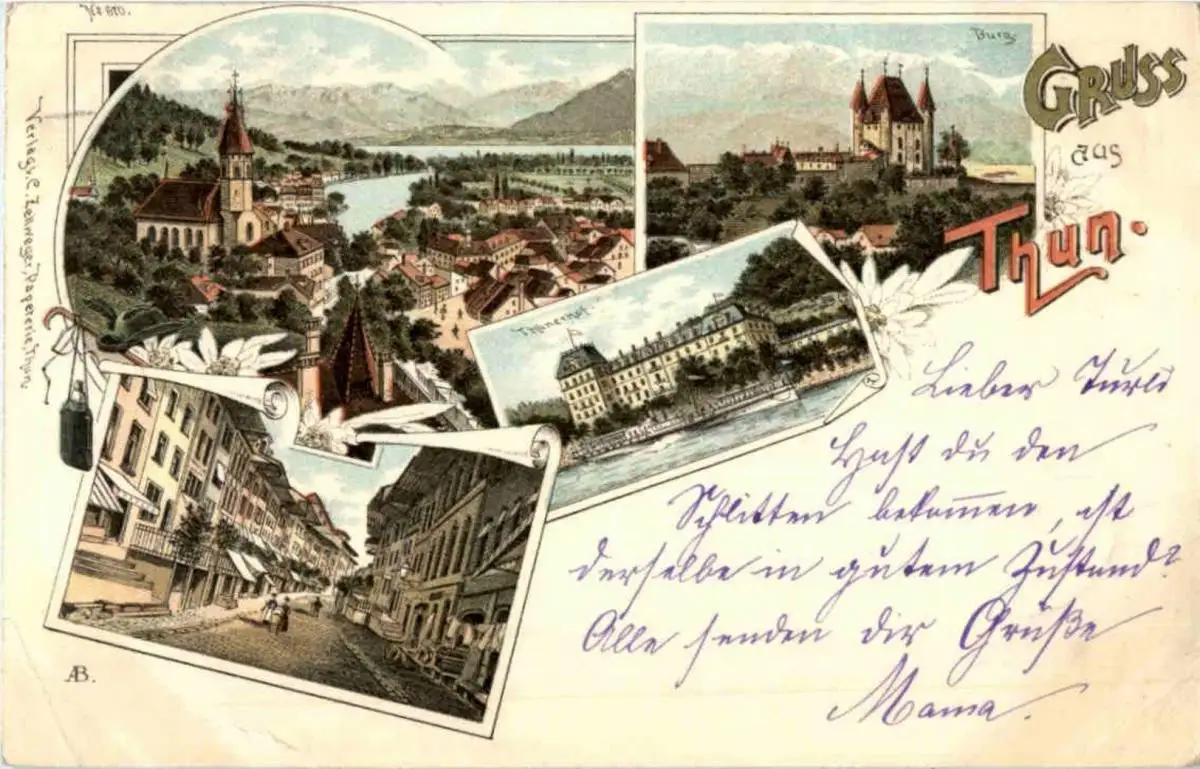 No 610.
Verlag v. C. Zellweger, Papeterie, Thun
Burg.
GRUSS
aus
Thun.
Thunerhof.
Lieber Turli
Hast du den
Schlitten bekommen, ist
derselbe in gutem Zustand?
Alle senden dir Grüße
Mama.
AB.